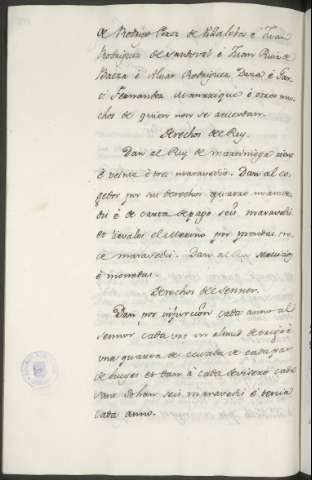 de Rodrigo Perez de Villalobos é Juan
Rodriguez de Sandoval é Juan Ruiz de
Baeza é Alvar Rodriguez Daza é Gar
ci Fernandez é otros mu
chos de quien non se acuerdan.
Derechos del Rey.
Dan al Rey de martiniega ciento
é veinte é tres maravedis. Dan al co
gedor por sus derechos quatro marave
dis é de carta de pago seis maravedis
et lievales el Merino por
ce maravedis. Dan al Rey servicios
é monedas.
Derechos del Señor.
Dan por infurcion cada anno al
sennor cada uno un almud de trigo é
una quarta de cevada de cada par
de bueyes et dan á cada
para Sohan seis maravedis é tercia
cada anno.